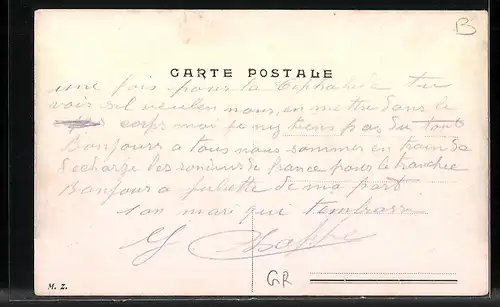 B
CARTE POSTALE
une fois pour la tu
vois sil veulen nous en mettre dans le
corps moi je ny tiens pas du tout
Bonjours a tous nous sommes en train de
decharge les de france pour le tranchee
Bonjour a Juliette de ma part
ton mari qui tembrasse
GR
M. Z.